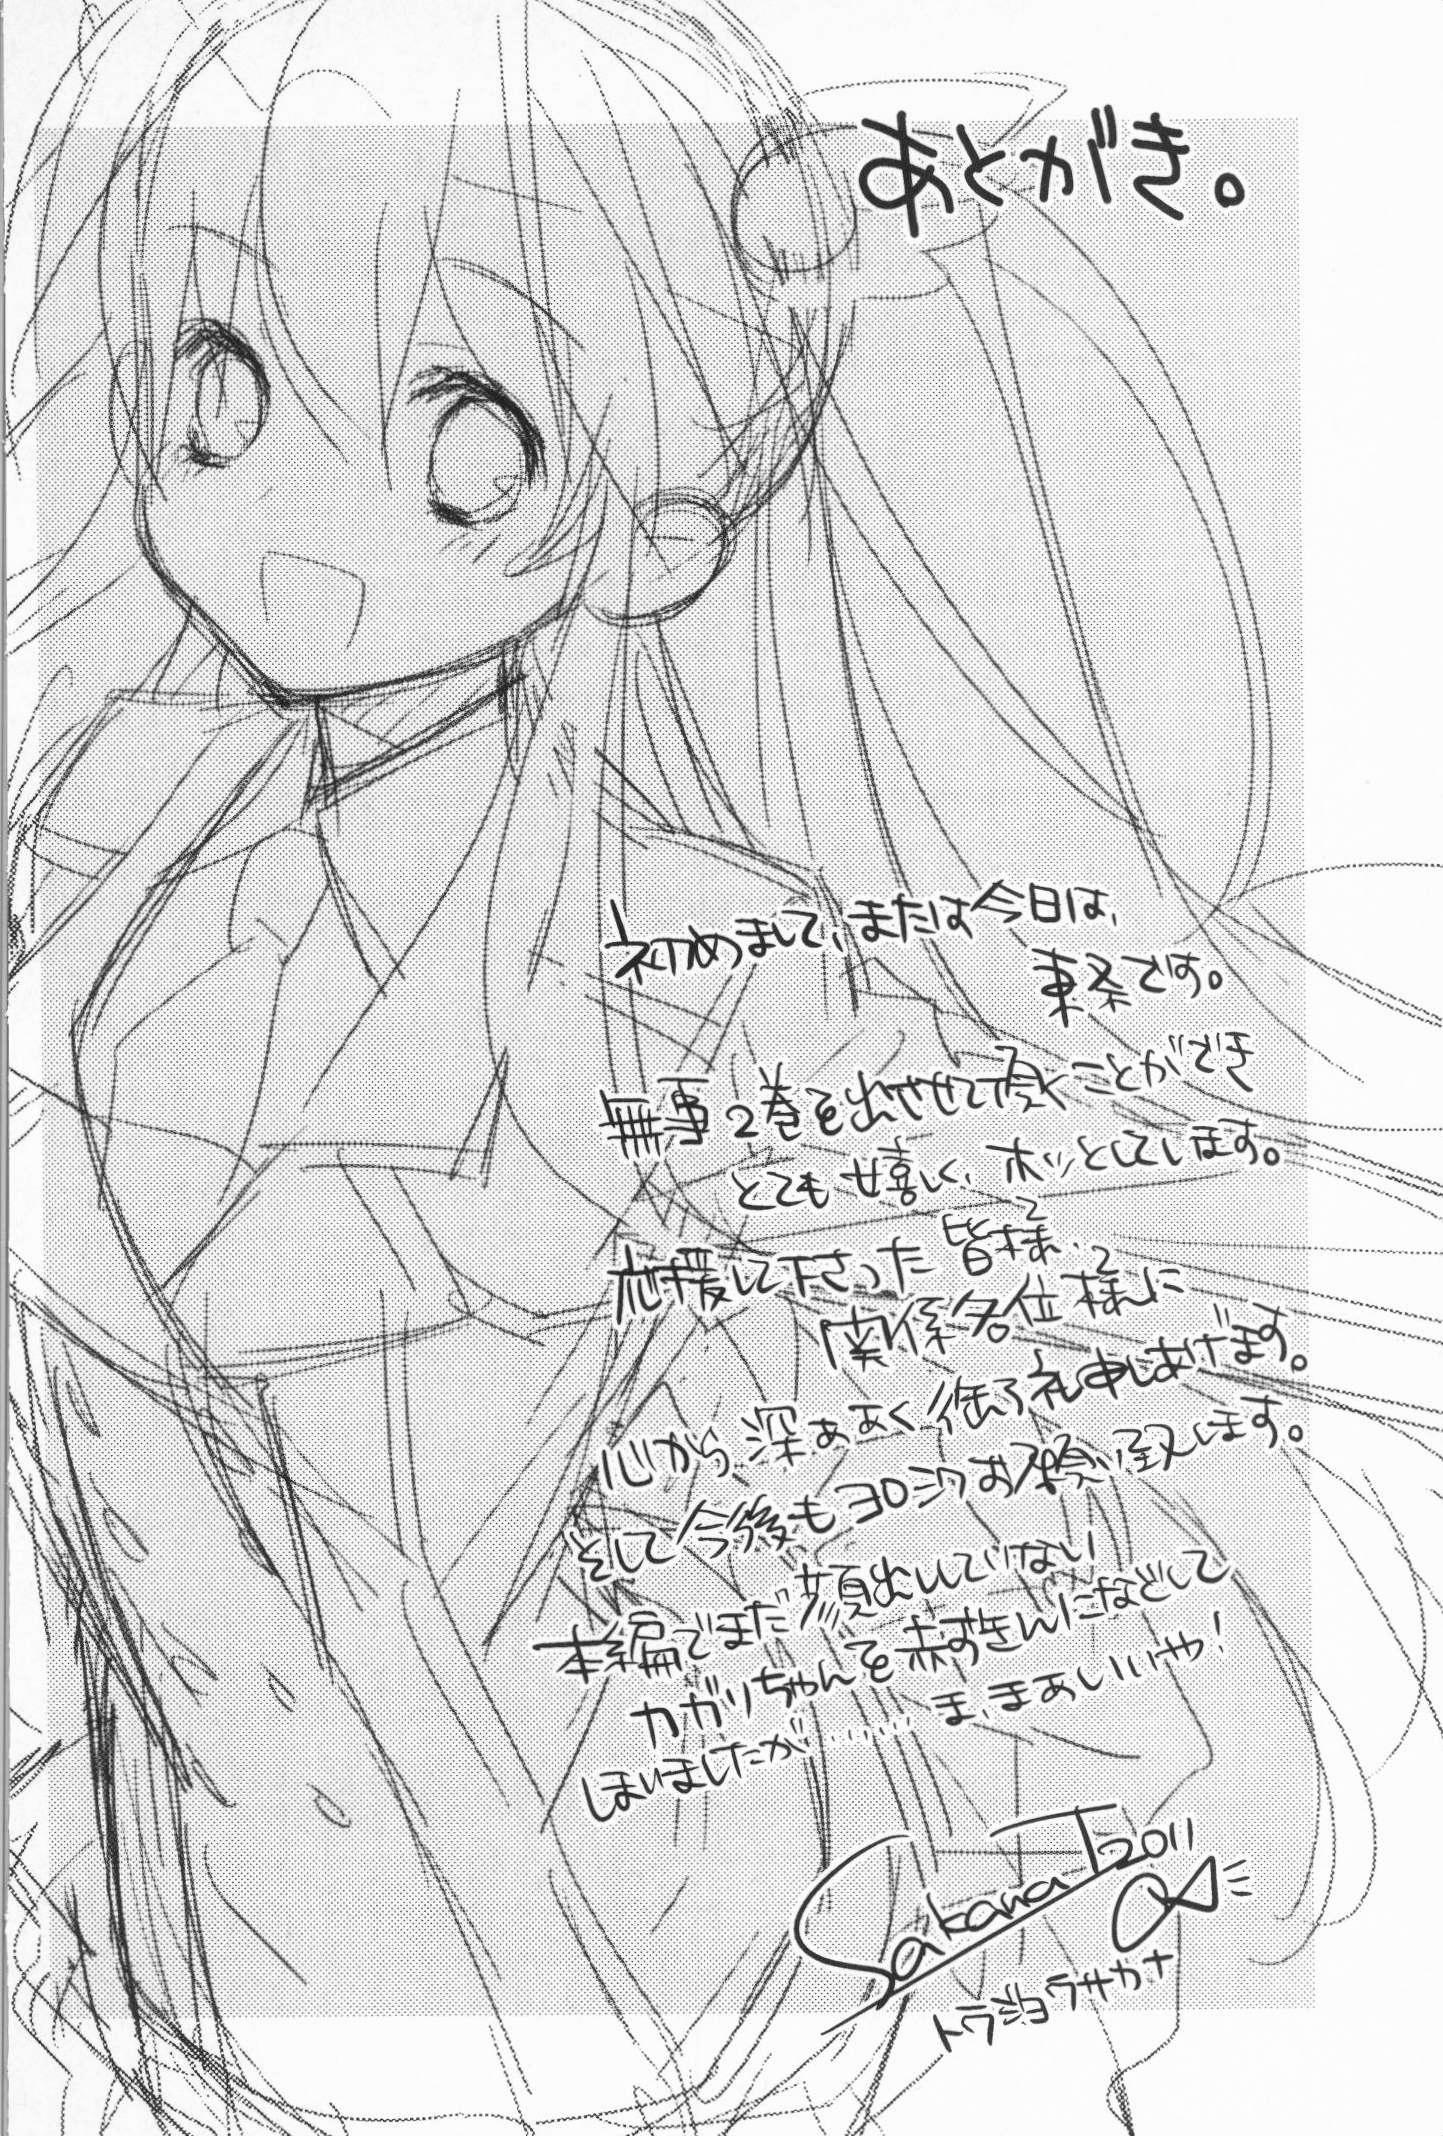 あとがき。
初めまして、または今日は、
東条です。
無事2巻を出させて頂くことができ
とても嬉しく、ホッとしています。
応援して下さった皆様、
関係各位様に
心から深ぁぁく御礼申しあげます。
そして今後もヨロシクお願い致します。
本編でまだ顔出ししていない
カガリちゃんを赤ずきんになどして
しまいましたが……ま、まあいいや！
Sakana T 2011
トウジョウサカナ